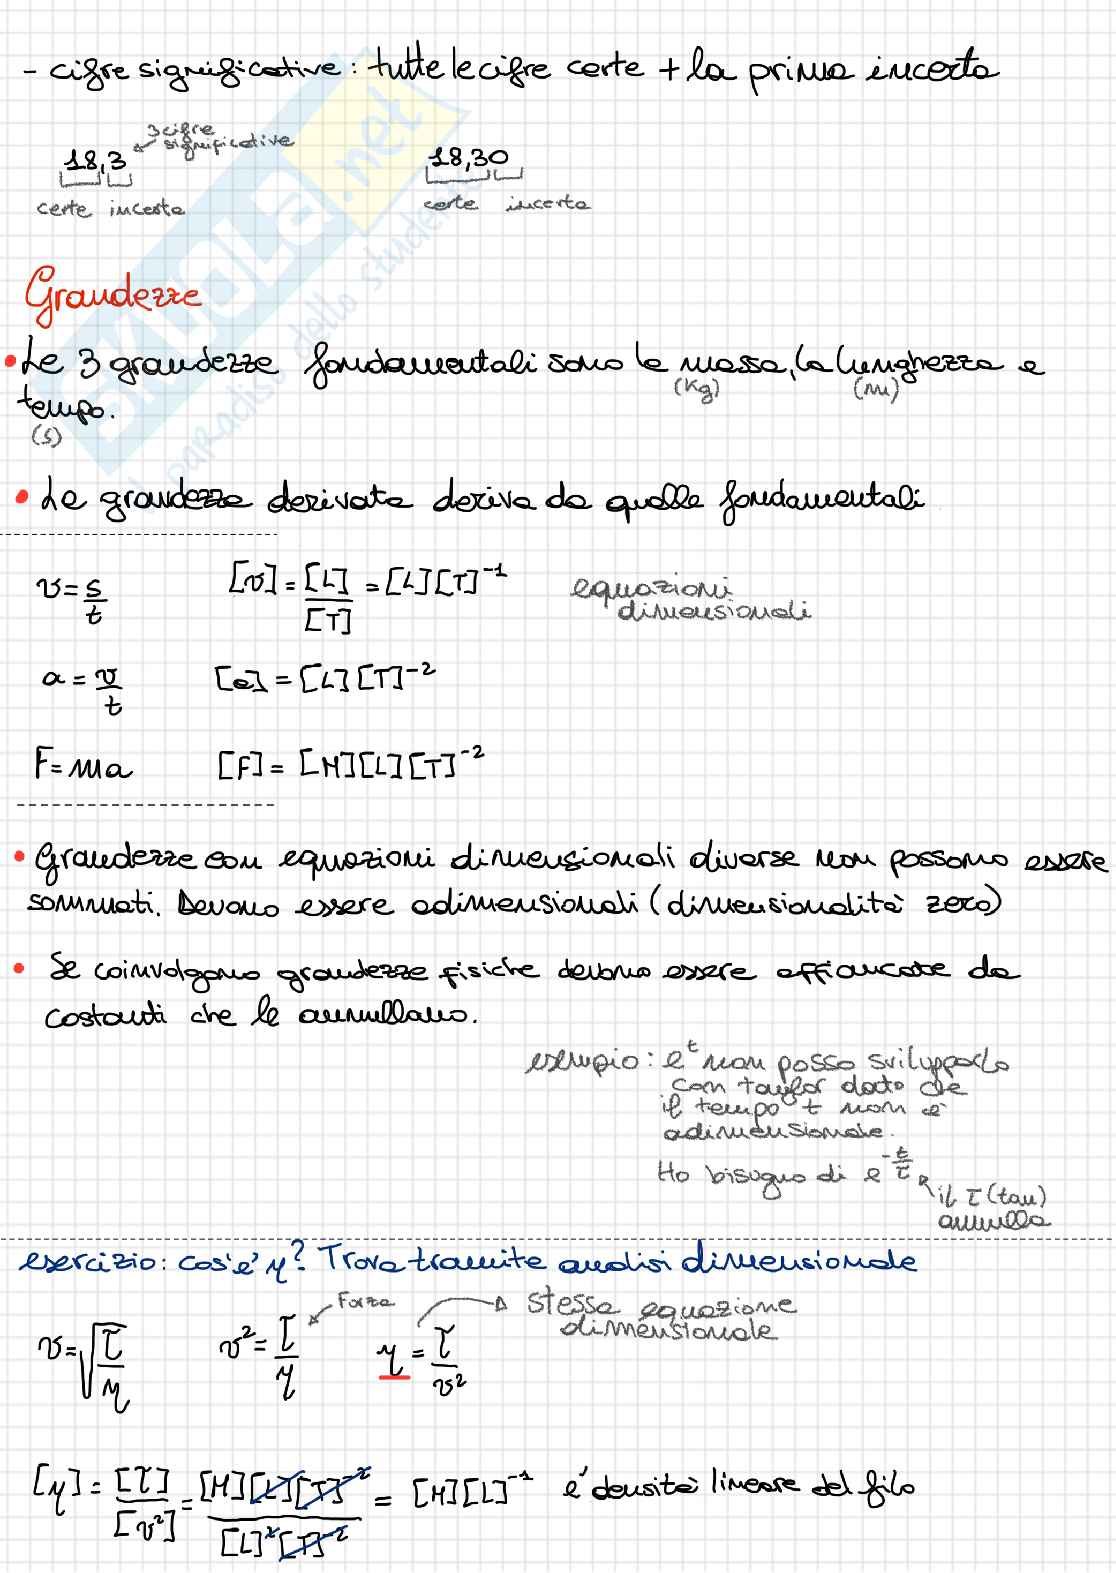 - cifre significative: tutte le cifre certe + la prima incerta
3 cifre
significative
18,3
18,30
certe incerta
certe incerta
Grandezze
• Le 3 grandezze fondamentali sono la massa, la lunghezza e
(Kg) (m)
tempo.
(s)
• Le grandezze derivate deriva da quelle fondamentali
v = s/t [v] = [L]/[T] = [L][T]⁻¹ equazioni
dimensionali
a = v/t [a] = [L][T]⁻²
F = ma [F] = [M][L][T]⁻²
• Grandezze con equazioni dimensionali diverse non possono essere
sommati. Devono essere adimensionali (dimensionalità zero)
• Se coinvolgono grandezze fisiche devono essere affiancate da
costanti che le annullano.
esempio: eᵗ non posso svilupparlo
con taylor dato che
il tempo t non è
adimensionale.
Ho bisogno di e^(-t/τ)
il τ (tau)
annulla
esercizio: cos'è η? Trova tramite analisi dimensionale
Forza
stessa equazione
dimensionale
v = √(τ/η) v² = τ/η η = τ/v²
[η] = [τ]/[v²] = [M][L][T]⁻²/[L]²[T]⁻² = [M][L]⁻¹ è densità lineare del filo
SKUOLA.net
il paradiso dello studente